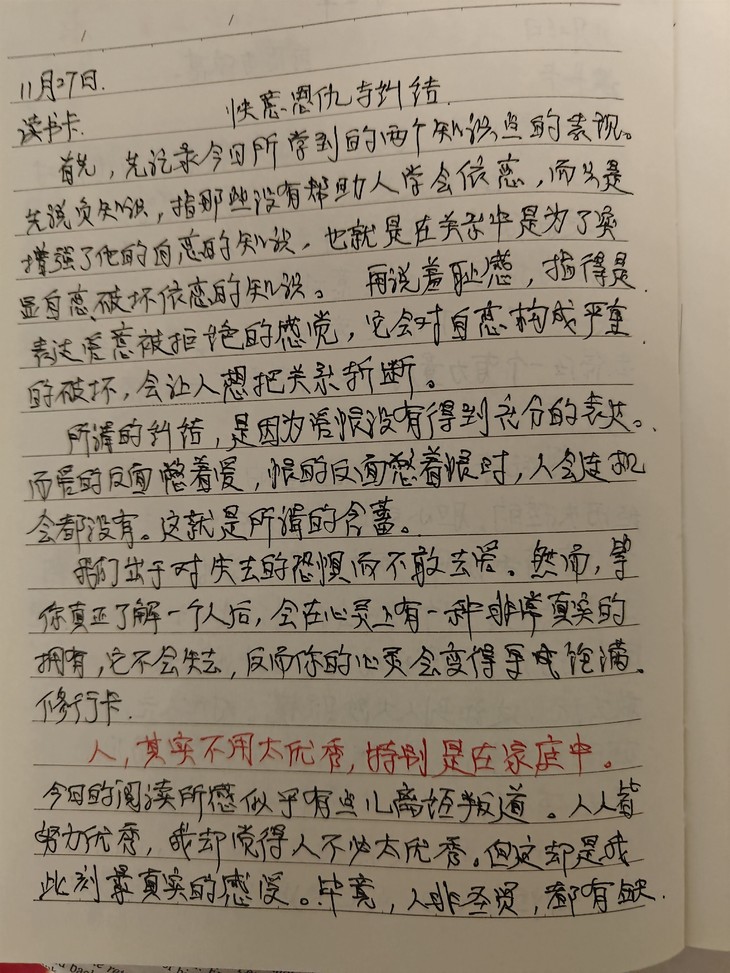 11月27日.
读书卡.
快意恩仇与纠结.
首先，先记录今日所学到的两个知识点的表现。
先说负知识，指那些没有帮助人学会依恋，而只是
增强了他的自恋的知识，也就是在关系中是为了突
显自恋、破坏依恋的知识。再说羞耻感，指得是
表达爱意被拒绝的感觉，它会对自恋构成严重
的破坏，会让人想把关系折断。
所谓的纠结，是因为爱恨没有得到充分的表达。
而爱的反面憋着爱，恨的反面憋着恨时，人会连机
会都没有。这就是所谓的含蓄。
我们出于对失去的恐惧而不敢去爱。然而，等
你真正了解一个人后，会在心灵上有一种非常真实的
拥有，它不会失去，反而你的心灵会变得 饱满。
修行卡.
人，其实不用太优秀，特别是在家庭中。
今日的阅读所感似乎有点儿离经叛道。人人皆
努力优秀，我却觉得人不必太优秀。但这却是我
此刻最真实的感受。毕竟，人非圣贤，都有缺